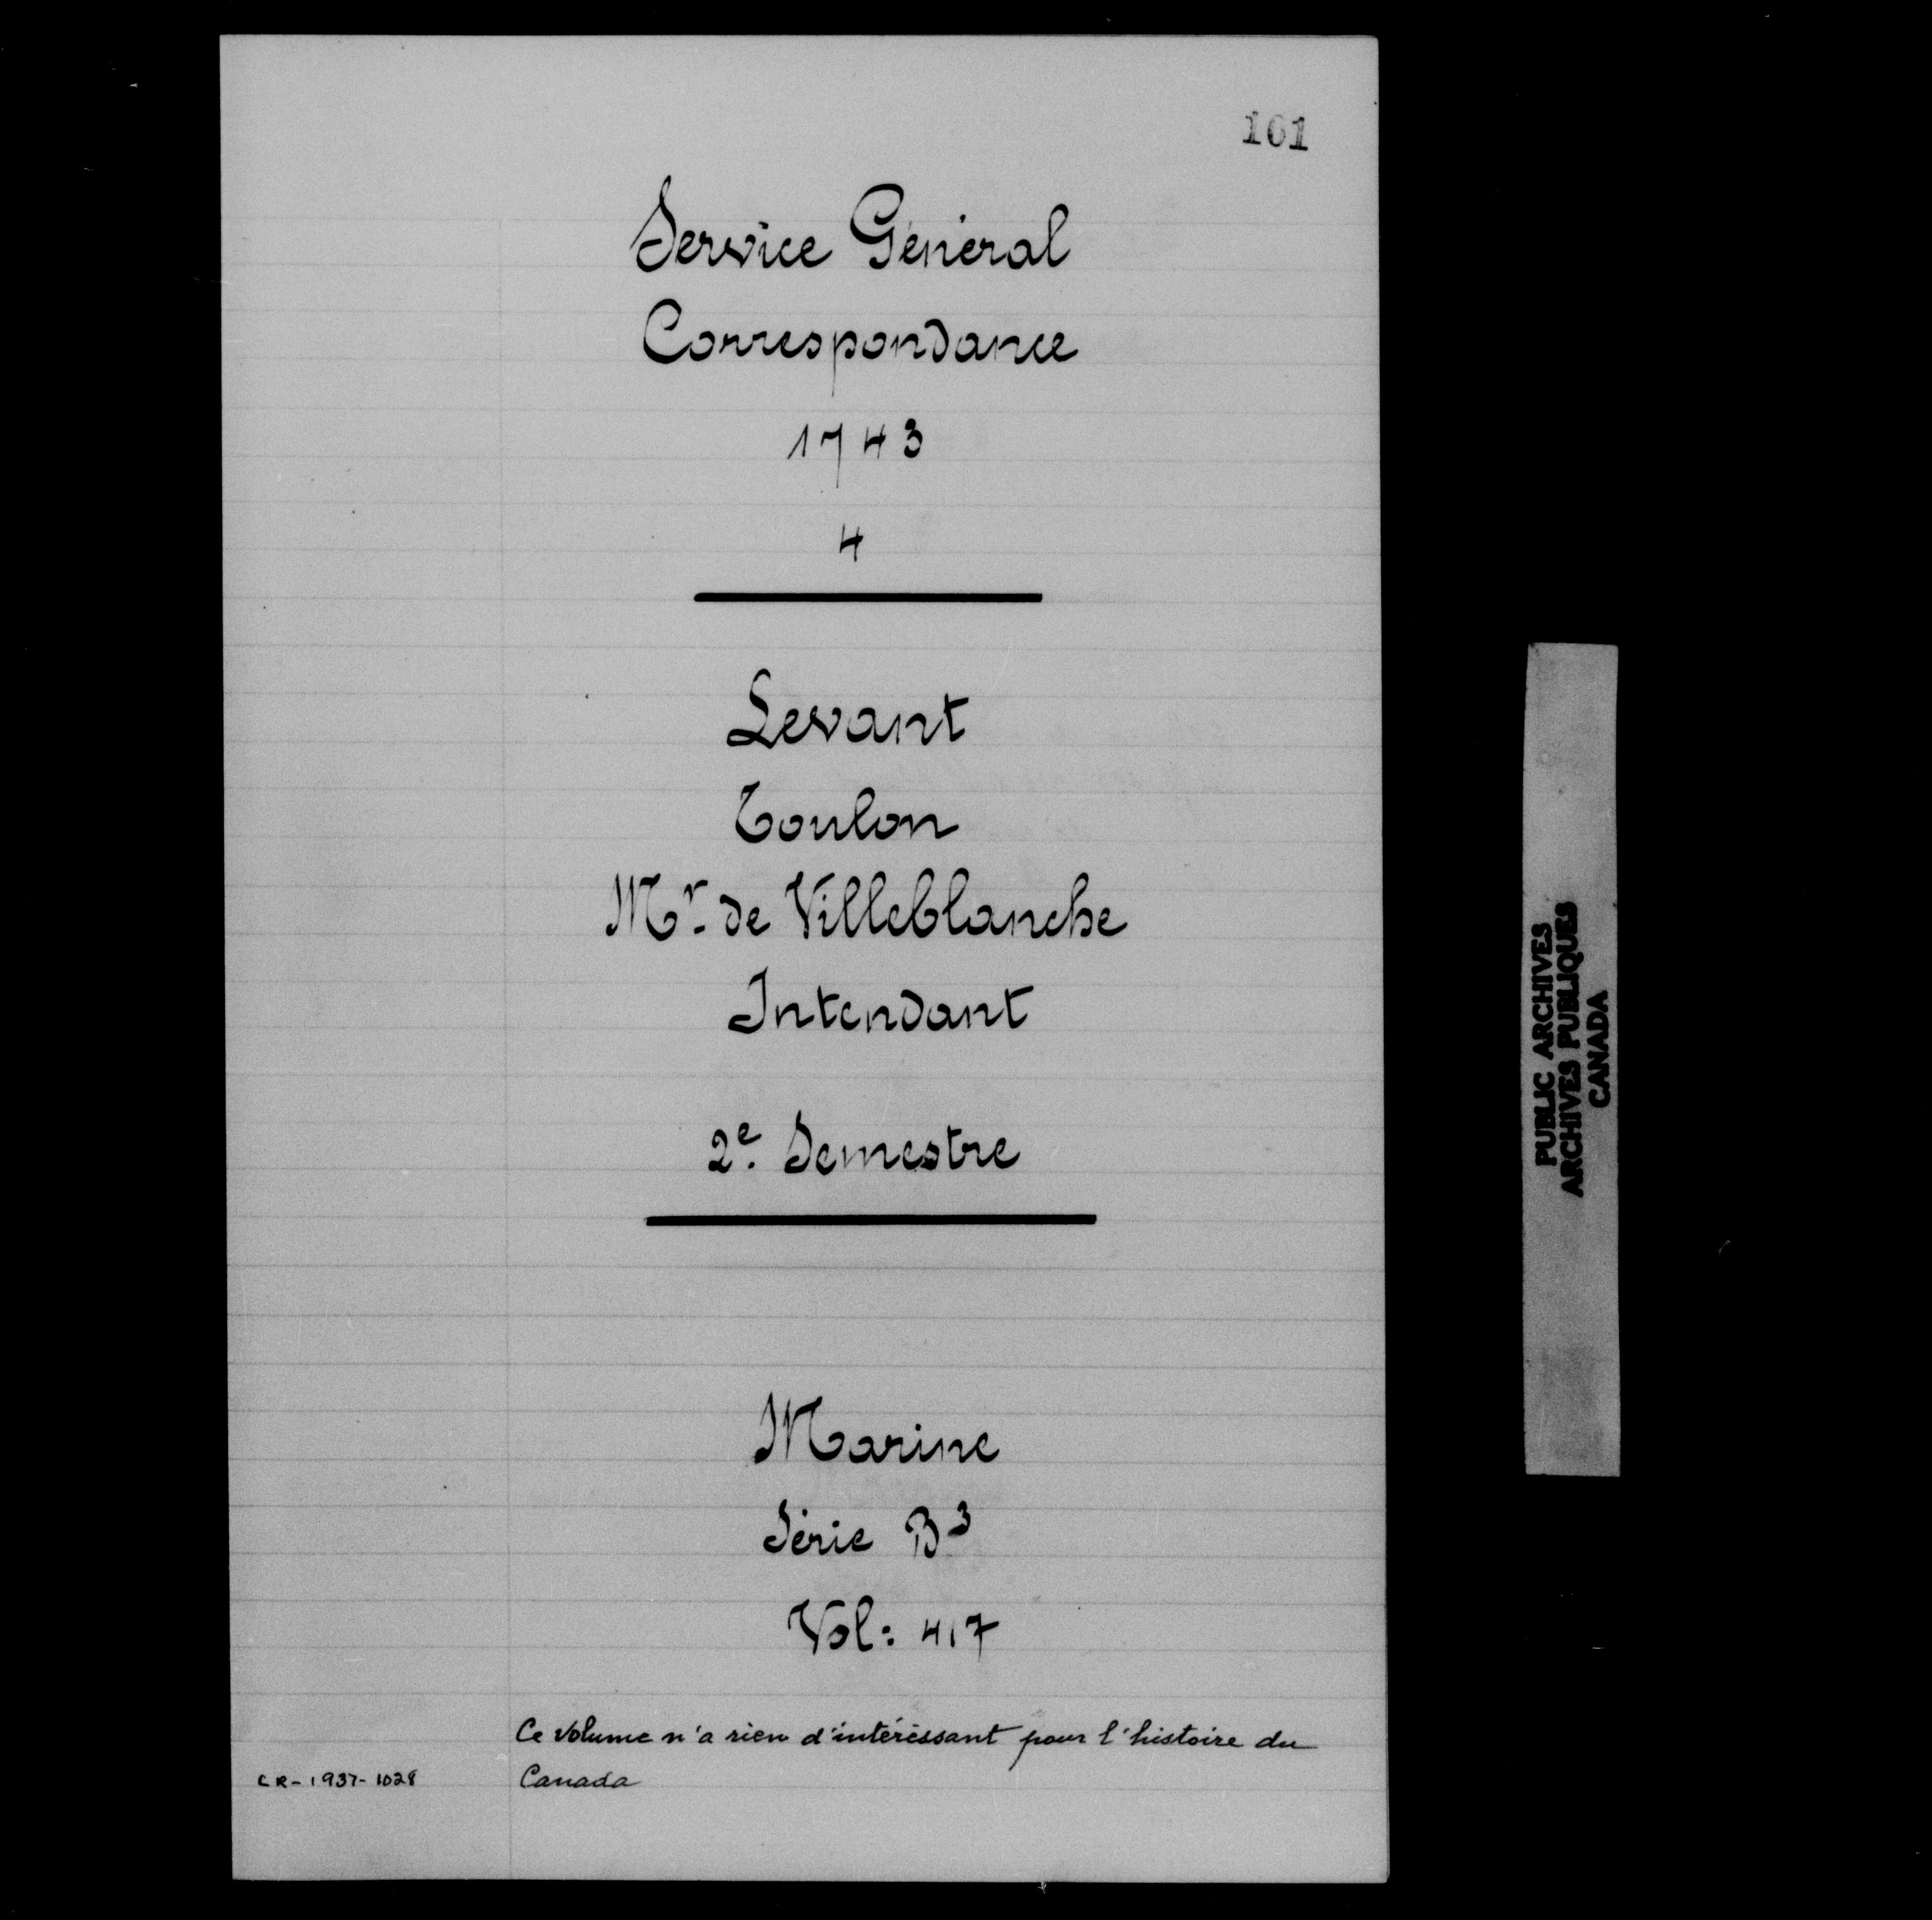 161
Service Général
Correspondance
1743
4
Levant
Toulon
Mr. de Villeblanche
Intendant
2e. Semestre
Marine
Série B3
Vol: 417
Ce volume n'a rien d'intéressant pour l'histoire du
Canada
CR-1937-1028
PUBLIC ARCHIVES
ARCHIVES PUBLIQUES
CANADA